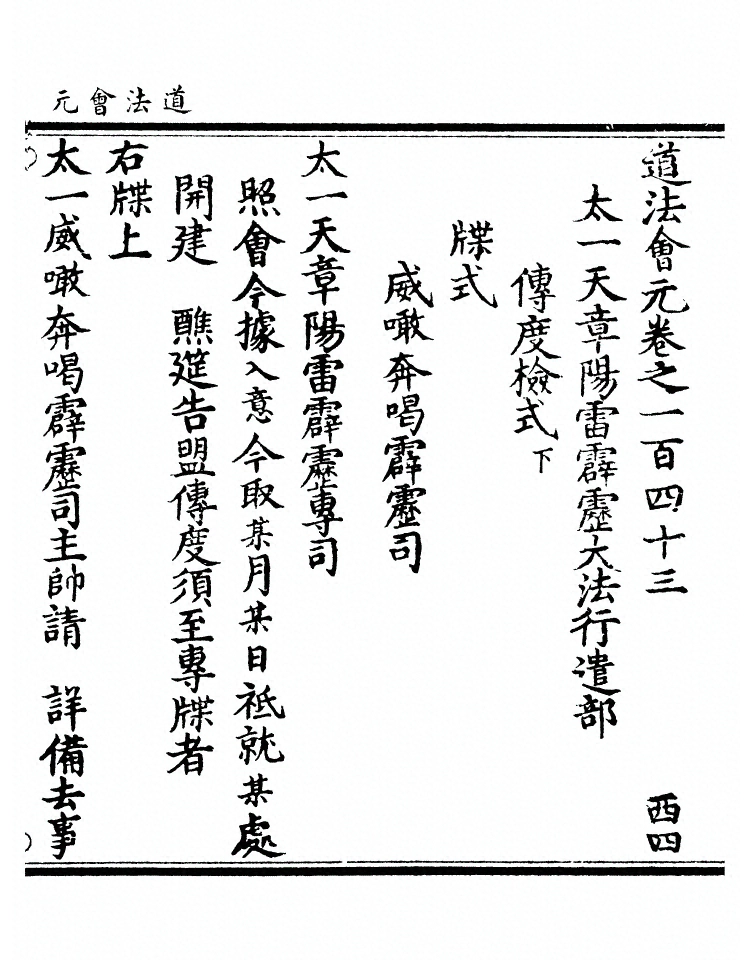 道法會元
道法會元卷之一百四十三 西四
太一天章陽雷霹靂大法行遣部
傳度檢式下
牒式
威噉奔喝霹靂司
太一天章陽雷霹靂專司
照會今據入意今取某月某日祗就某處
開建 醮筵告盟傳度須至專牒者
右牒上
太一威噉奔喝霹靂司主帥請 詳備去事